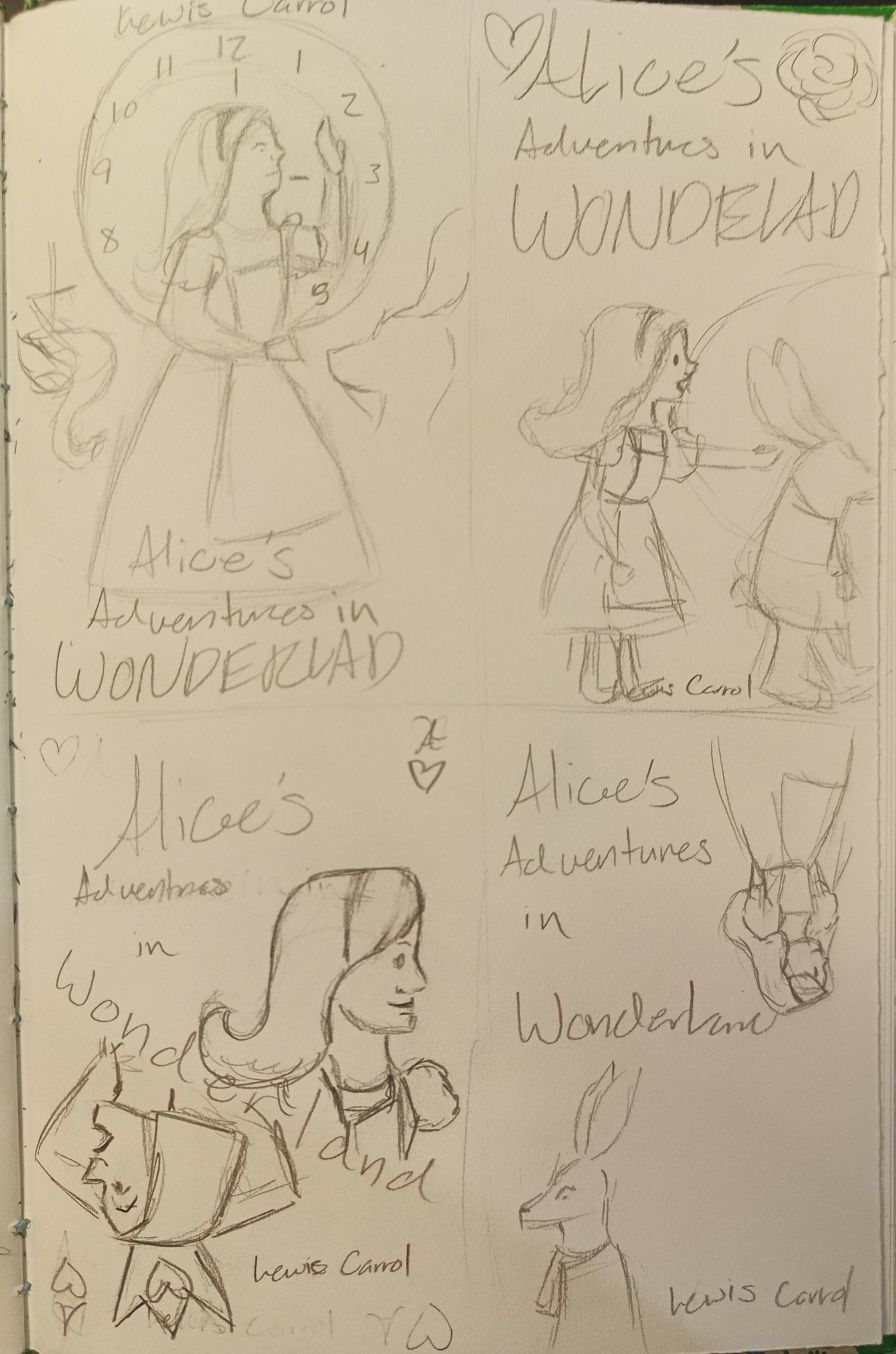 Lewis Carrol
12
11
1
10
2
9
3
8
4
5
Alice's
Adventures in
WONDERLAD
Alice's
Adventures in
WONDELAD
Lewis Carrol
Alice's
Adventures
in
Wonderland
Lewis Carrol
Alice's
Adventures
in
Wonderland
Lewis Carrol